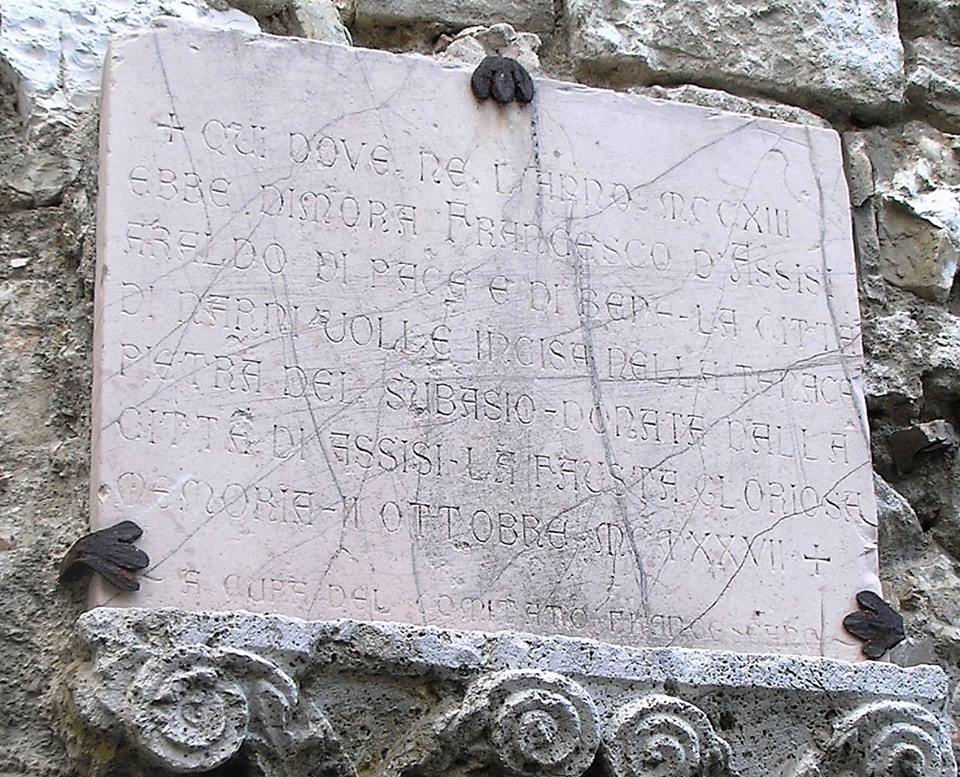 + QUI DOVE. NE. L'ANNO. MCCXIII
EBBE. DIMORA FRANCESCO D'ASSISI
ARALDO DI PACE E DI BENE - LA CITTÀ
DI NARNI VOLLE INCISA NELLA TENACE
PIETRA DEL SUBASIO - DONATA DALLA
CITTÀ DI ASSISI - LA FAUSTA GLORIOSA
MEMORIA - II OTTOBRE
A CURA DEL COMITATO